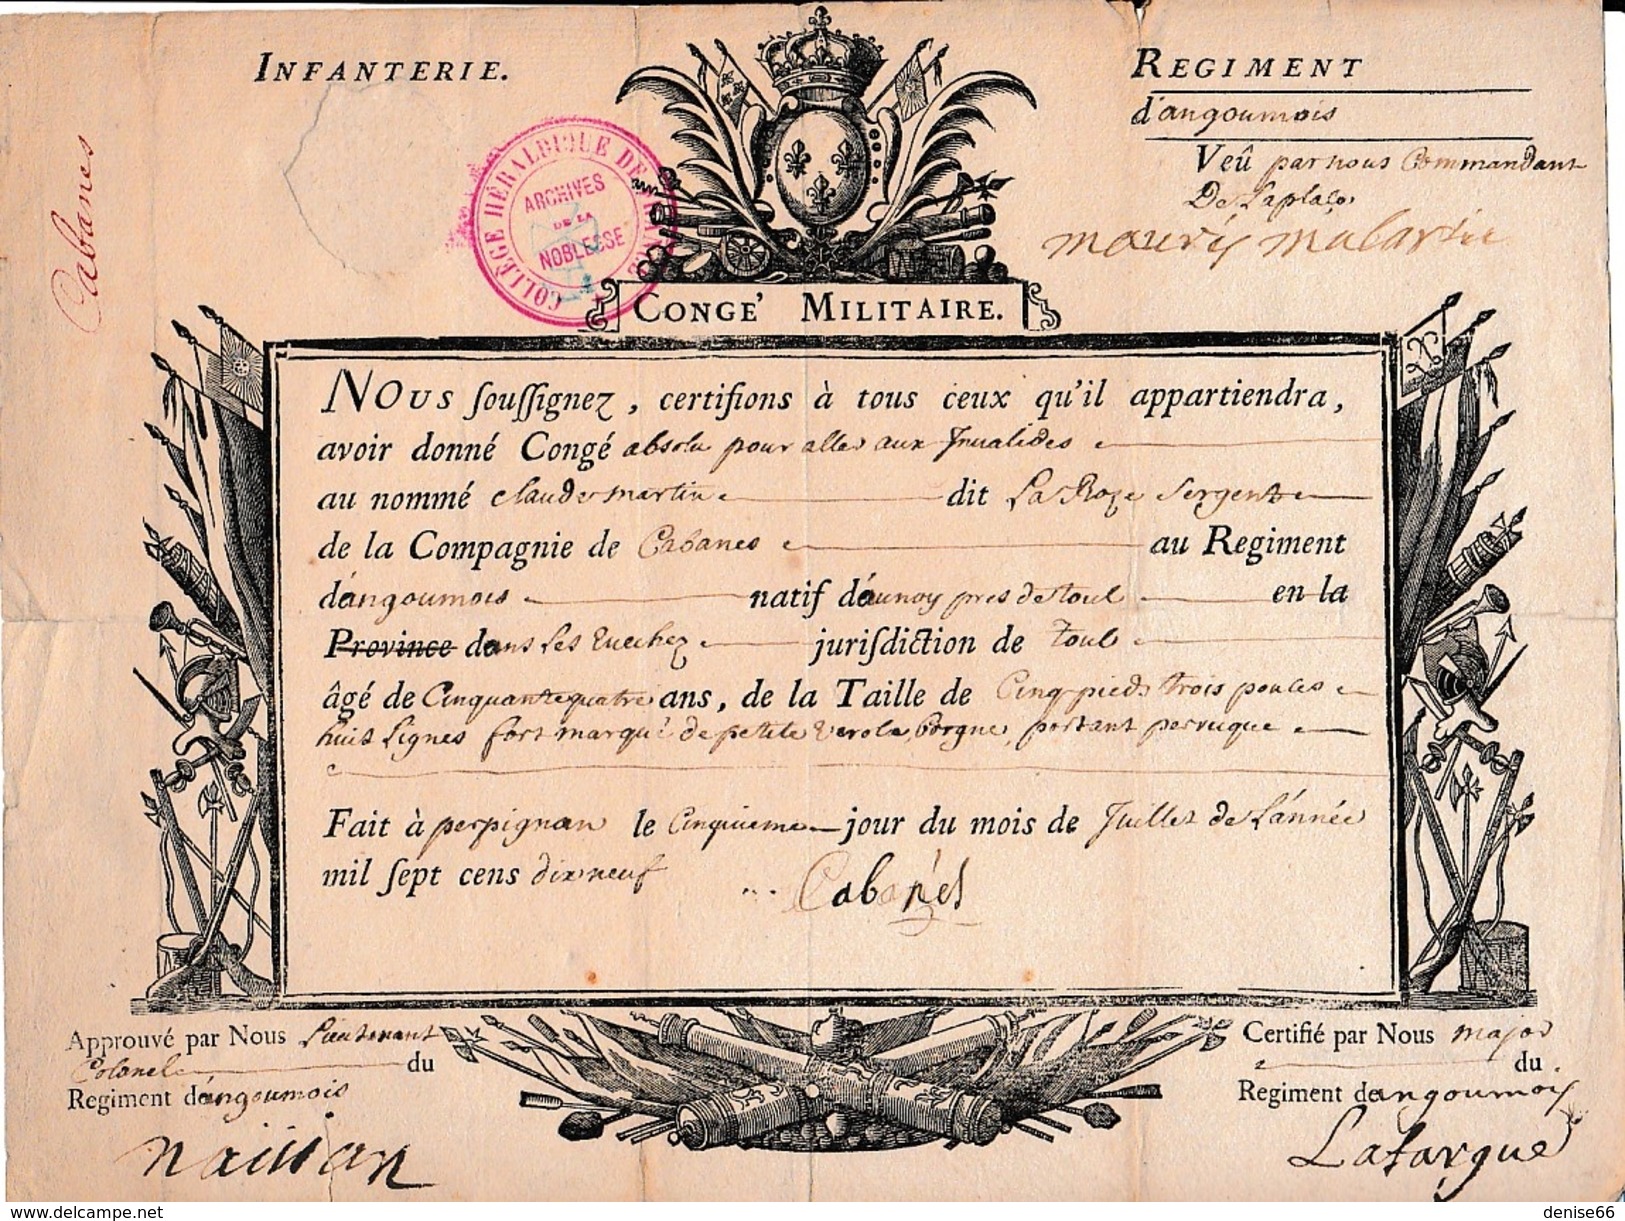 INFANTERIE.
REGIMENT
d'angoumois
Veû par nous Commandant
De Laplace
Cabanes
COLLÈGE HÉRALDIQUE DE FRANCE
ARCHIVES
DE LA
NOBLESSE
CONGE' MILITAIRE.
NOUS souſſignez, certifions à tous ceux qu'il appartiendra,
avoir donné Congé absolu pour aller aux Invalides
au nommé claude martin dit La Roze Sergent
de la Compagnie de Cabanes au Regiment
d'angoumois natif d'aunoy pres de toul en la
Province dans Les Evechez juriſdiction de toul
âgé de Cinquante quatre ans, de la Taille de Cinq pieds trois pouces
huit Lignes fort marqué de petite verole, borgne, portant perruque
Fait à perpignan le Cinquieme jour du mois de Juillet de L'année
mil ſept cens dix neuf
Cabanes
Approuvé par Nous Lieutenant
Colonel du
Regiment d'angoumois
Certifié par Nous major
du
Regiment de angoumois
Lafargue
delcampe.net
denise66